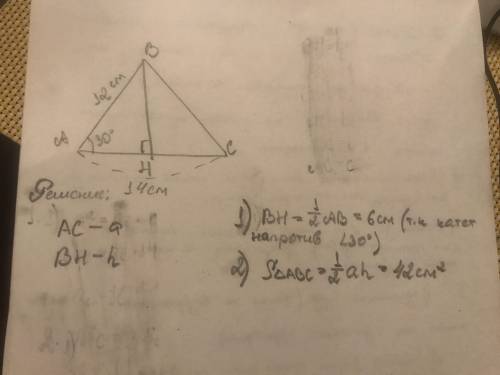 B
12 см
A
30°
H
C
14 см
Решение:
AC – a
BH – h
1) BH = 1/2 AB = 6 см (т.к катет
напротив ∠30°)
2) S△ABC = 1/2 ah = 42 см²